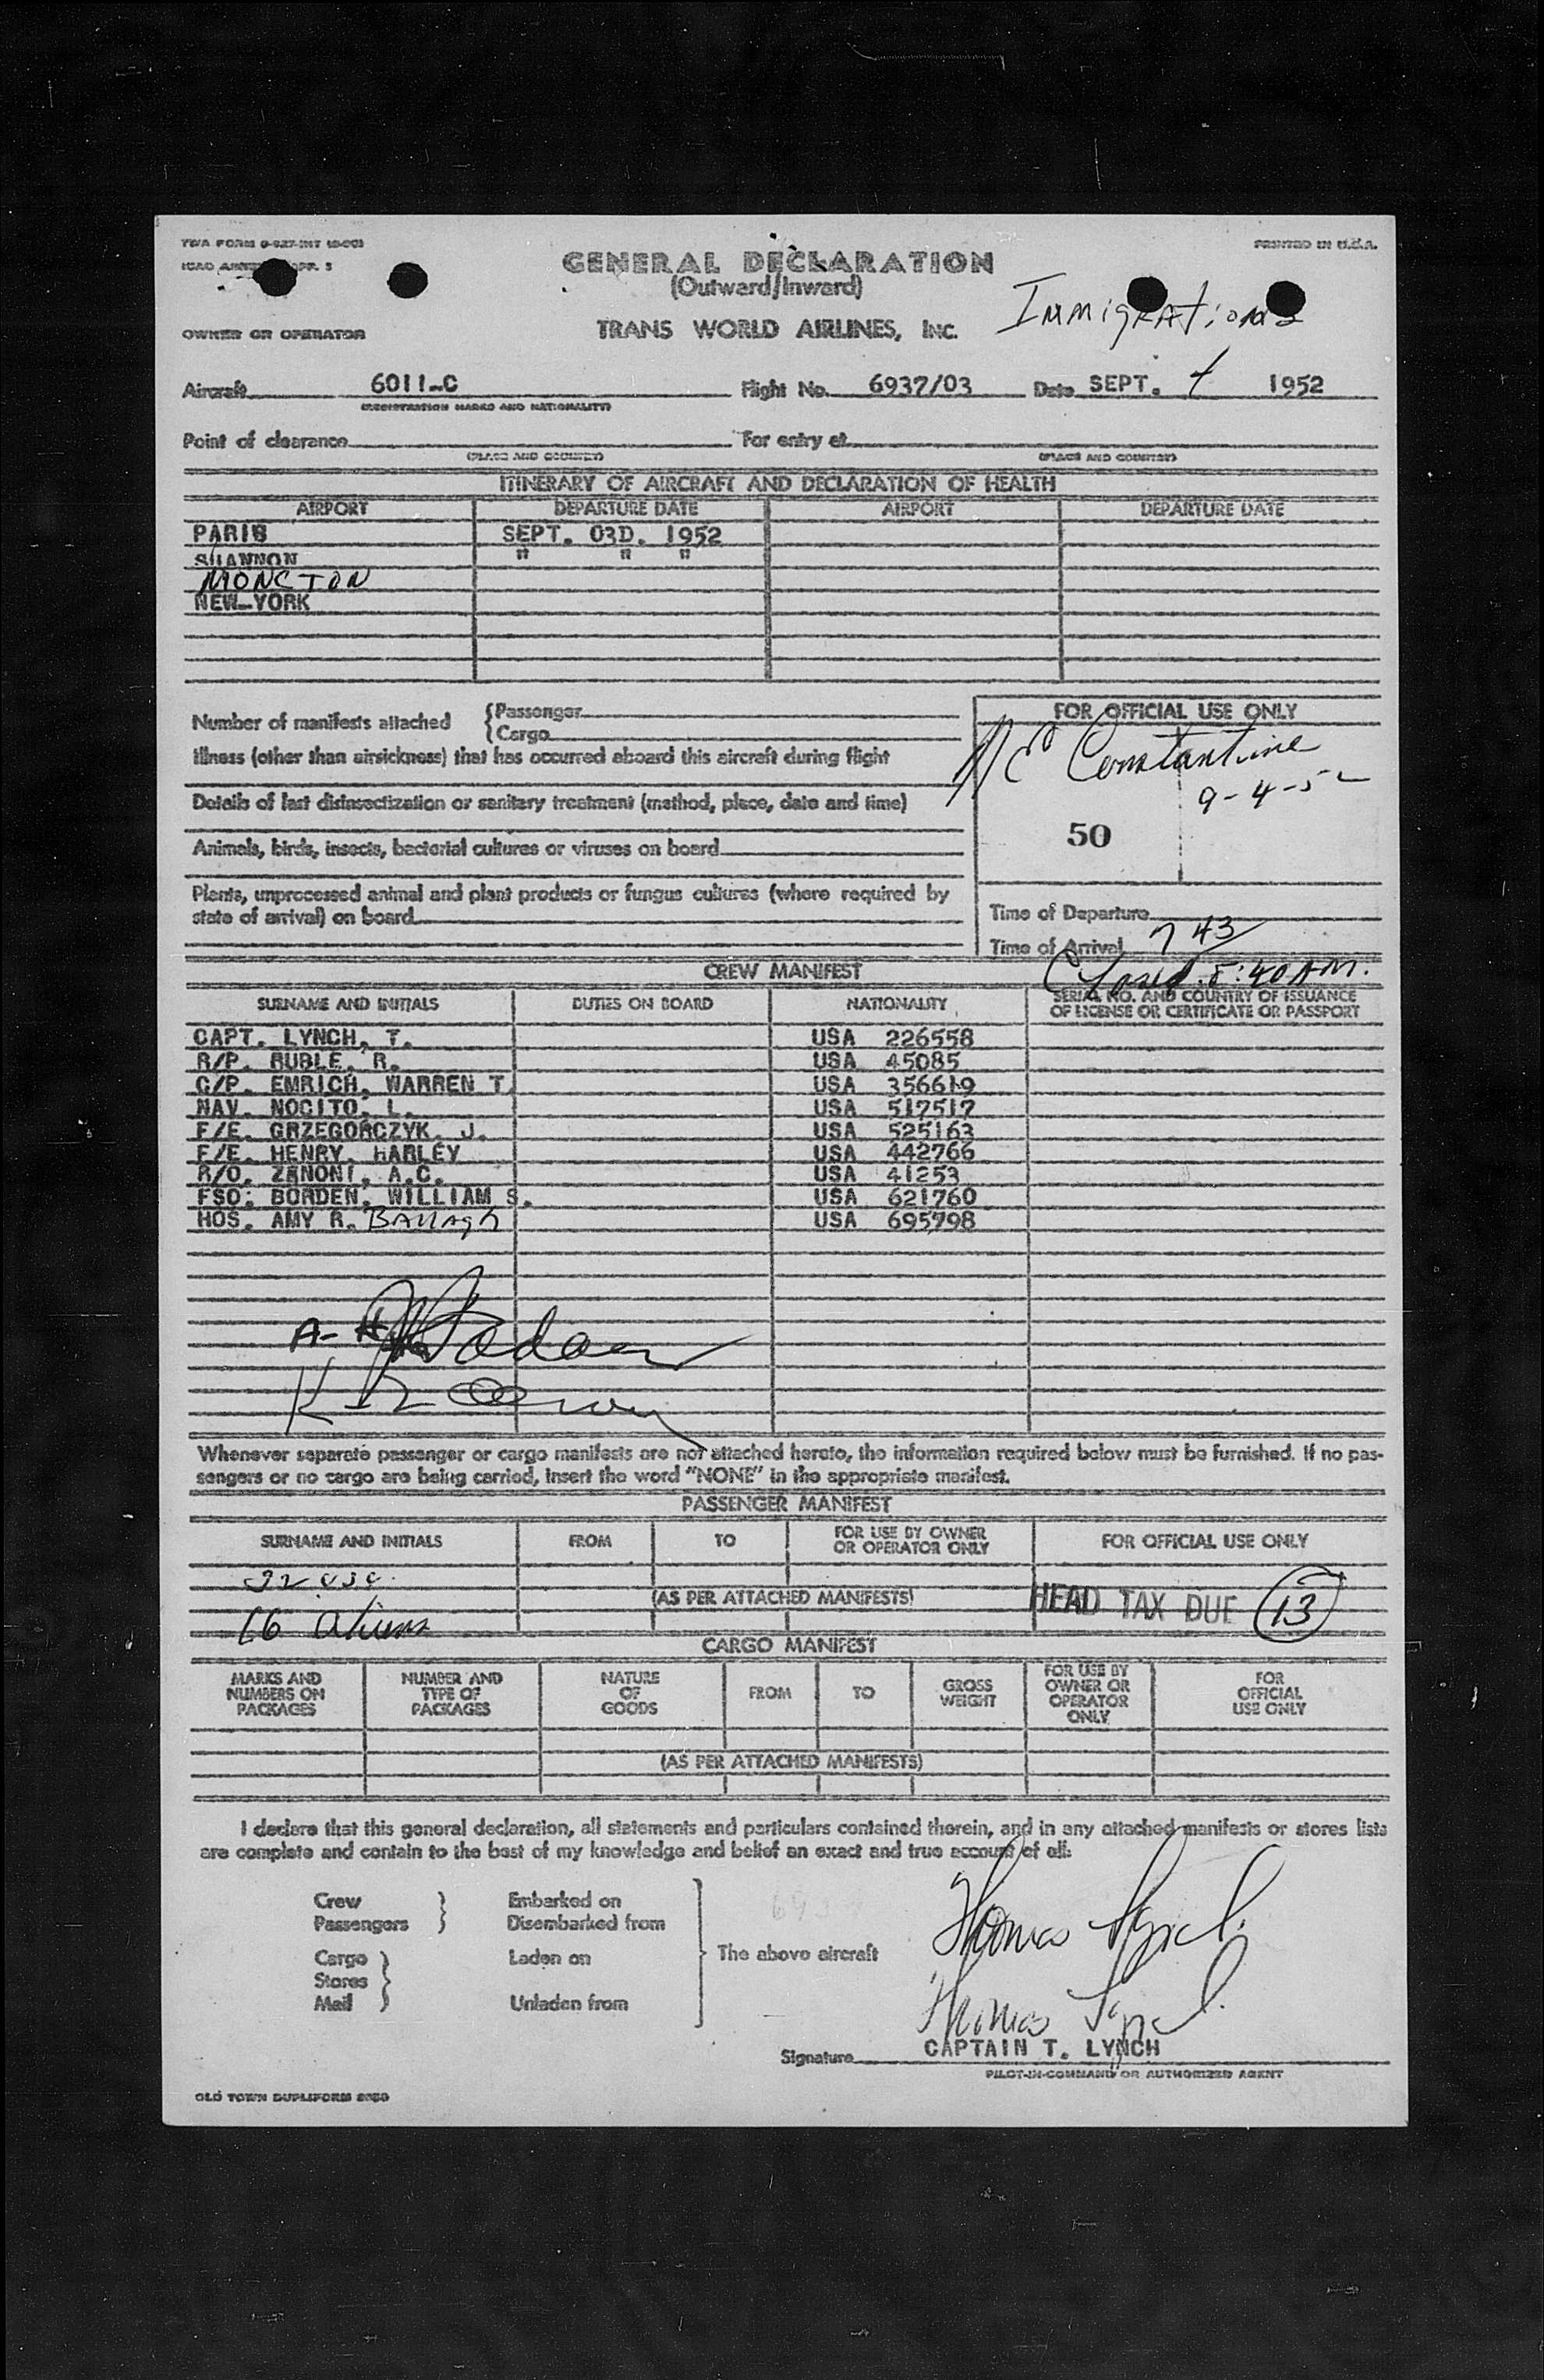 TWA FORM
PRINTED IN U.S.A.
GENERAL DECLARATION
(Outward/Inward)
Immigration
OWNER OR OPERATOR
TRANS WORLD AIRLINES, INC.
Aircraft 6011-C Flight No. 6937/03 Date SEPT. 4 1952
(REGISTRATION MARKS AND NATIONALITY)
Point of clearance For entry at
(PLACE AND COUNTRY) (PLACE AND COUNTRY)
ITINERARY OF AIRCRAFT AND DECLARATION OF HEALTH
AIRPORT DEPARTURE DATE AIRPORT DEPARTURE DATE
PARIS SEPT. 03D. 1952
SHANNON " " "
MONCTON
NEW-YORK
Number of manifests attached {Passenger
{Cargo
Illness (other than airsickness) that has occurred aboard this aircraft during flight
Details of last disinsectization or sanitary treatment (method, place, date and time)
Animals, birds, insects, bacterial cultures or viruses on board
Plants, unprocessed animal and plant products or fungus cultures (where required by
state of arrival) on board
FOR OFFICIAL USE ONLY
Constantine
9-4-52
50
Time of Departure
Time of Arrival 7 43
Closed. 8:40 AM.
CREW MANIFEST
SURNAME AND INITIALS DUTIES ON BOARD NATIONALITY SERIAL NO. AND COUNTRY OF ISSUANCE
OF LICENSE OR CERTIFICATE OR PASSPORT
CAPT. LYNCH, T. USA 226558
R/P. RUBLE, R. USA 45085
C/P. EMRICH, WARREN T. USA 356619
NAV. NOCITO, L. USA 517517
F/E. GRZEGORCZYK, J. USA 525163
F/E. HENRY, HARLEY USA 442766
R/O. ZANONI, A.C. USA 41253
FSO; BORDEN, WILLIAM S. USA 621760
HOS. AMY R. Ballagh USA 695798
Whenever separate passenger or cargo manifests are not attached hereto, the information required below must be furnished. If no pas-
sengers or no cargo are being carried, insert the word "NONE" in the appropriate manifest.
PASSENGER MANIFEST
SURNAME AND INITIALS FROM TO FOR USE BY OWNER
OR OPERATOR ONLY FOR OFFICIAL USE ONLY
16 Aliens
(AS PER ATTACHED MANIFESTS)
HEAD TAX DUE 13
CARGO MANIFEST
MARKS AND
NUMBERS ON
PACKAGES
NUMBER AND
TYPE OF
PACKAGES
NATURE
OF
GOODS
FROM
TO
GROSS
WEIGHT
FOR USE BY
OWNER OR
OPERATOR
ONLY
FOR
OFFICIAL
USE ONLY
(AS PER ATTACHED MANIFESTS)
I declare that this general declaration, all statements and particulars contained therein, and in any attached manifests or stores lists
are complete and contain to the best of my knowledge and belief an exact and true account of all:
Crew } Embarked on
Passengers } Disembarked from
Cargo } Laden on
Stores
Mail } Unladen from
The above aircraft
Thomas Lynch
Thomas Lynch
CAPTAIN T. LYNCH
Signature
PILOT-IN-COMMAND OR AUTHORIZED AGENT
OLD TOWN DUPLIFORM